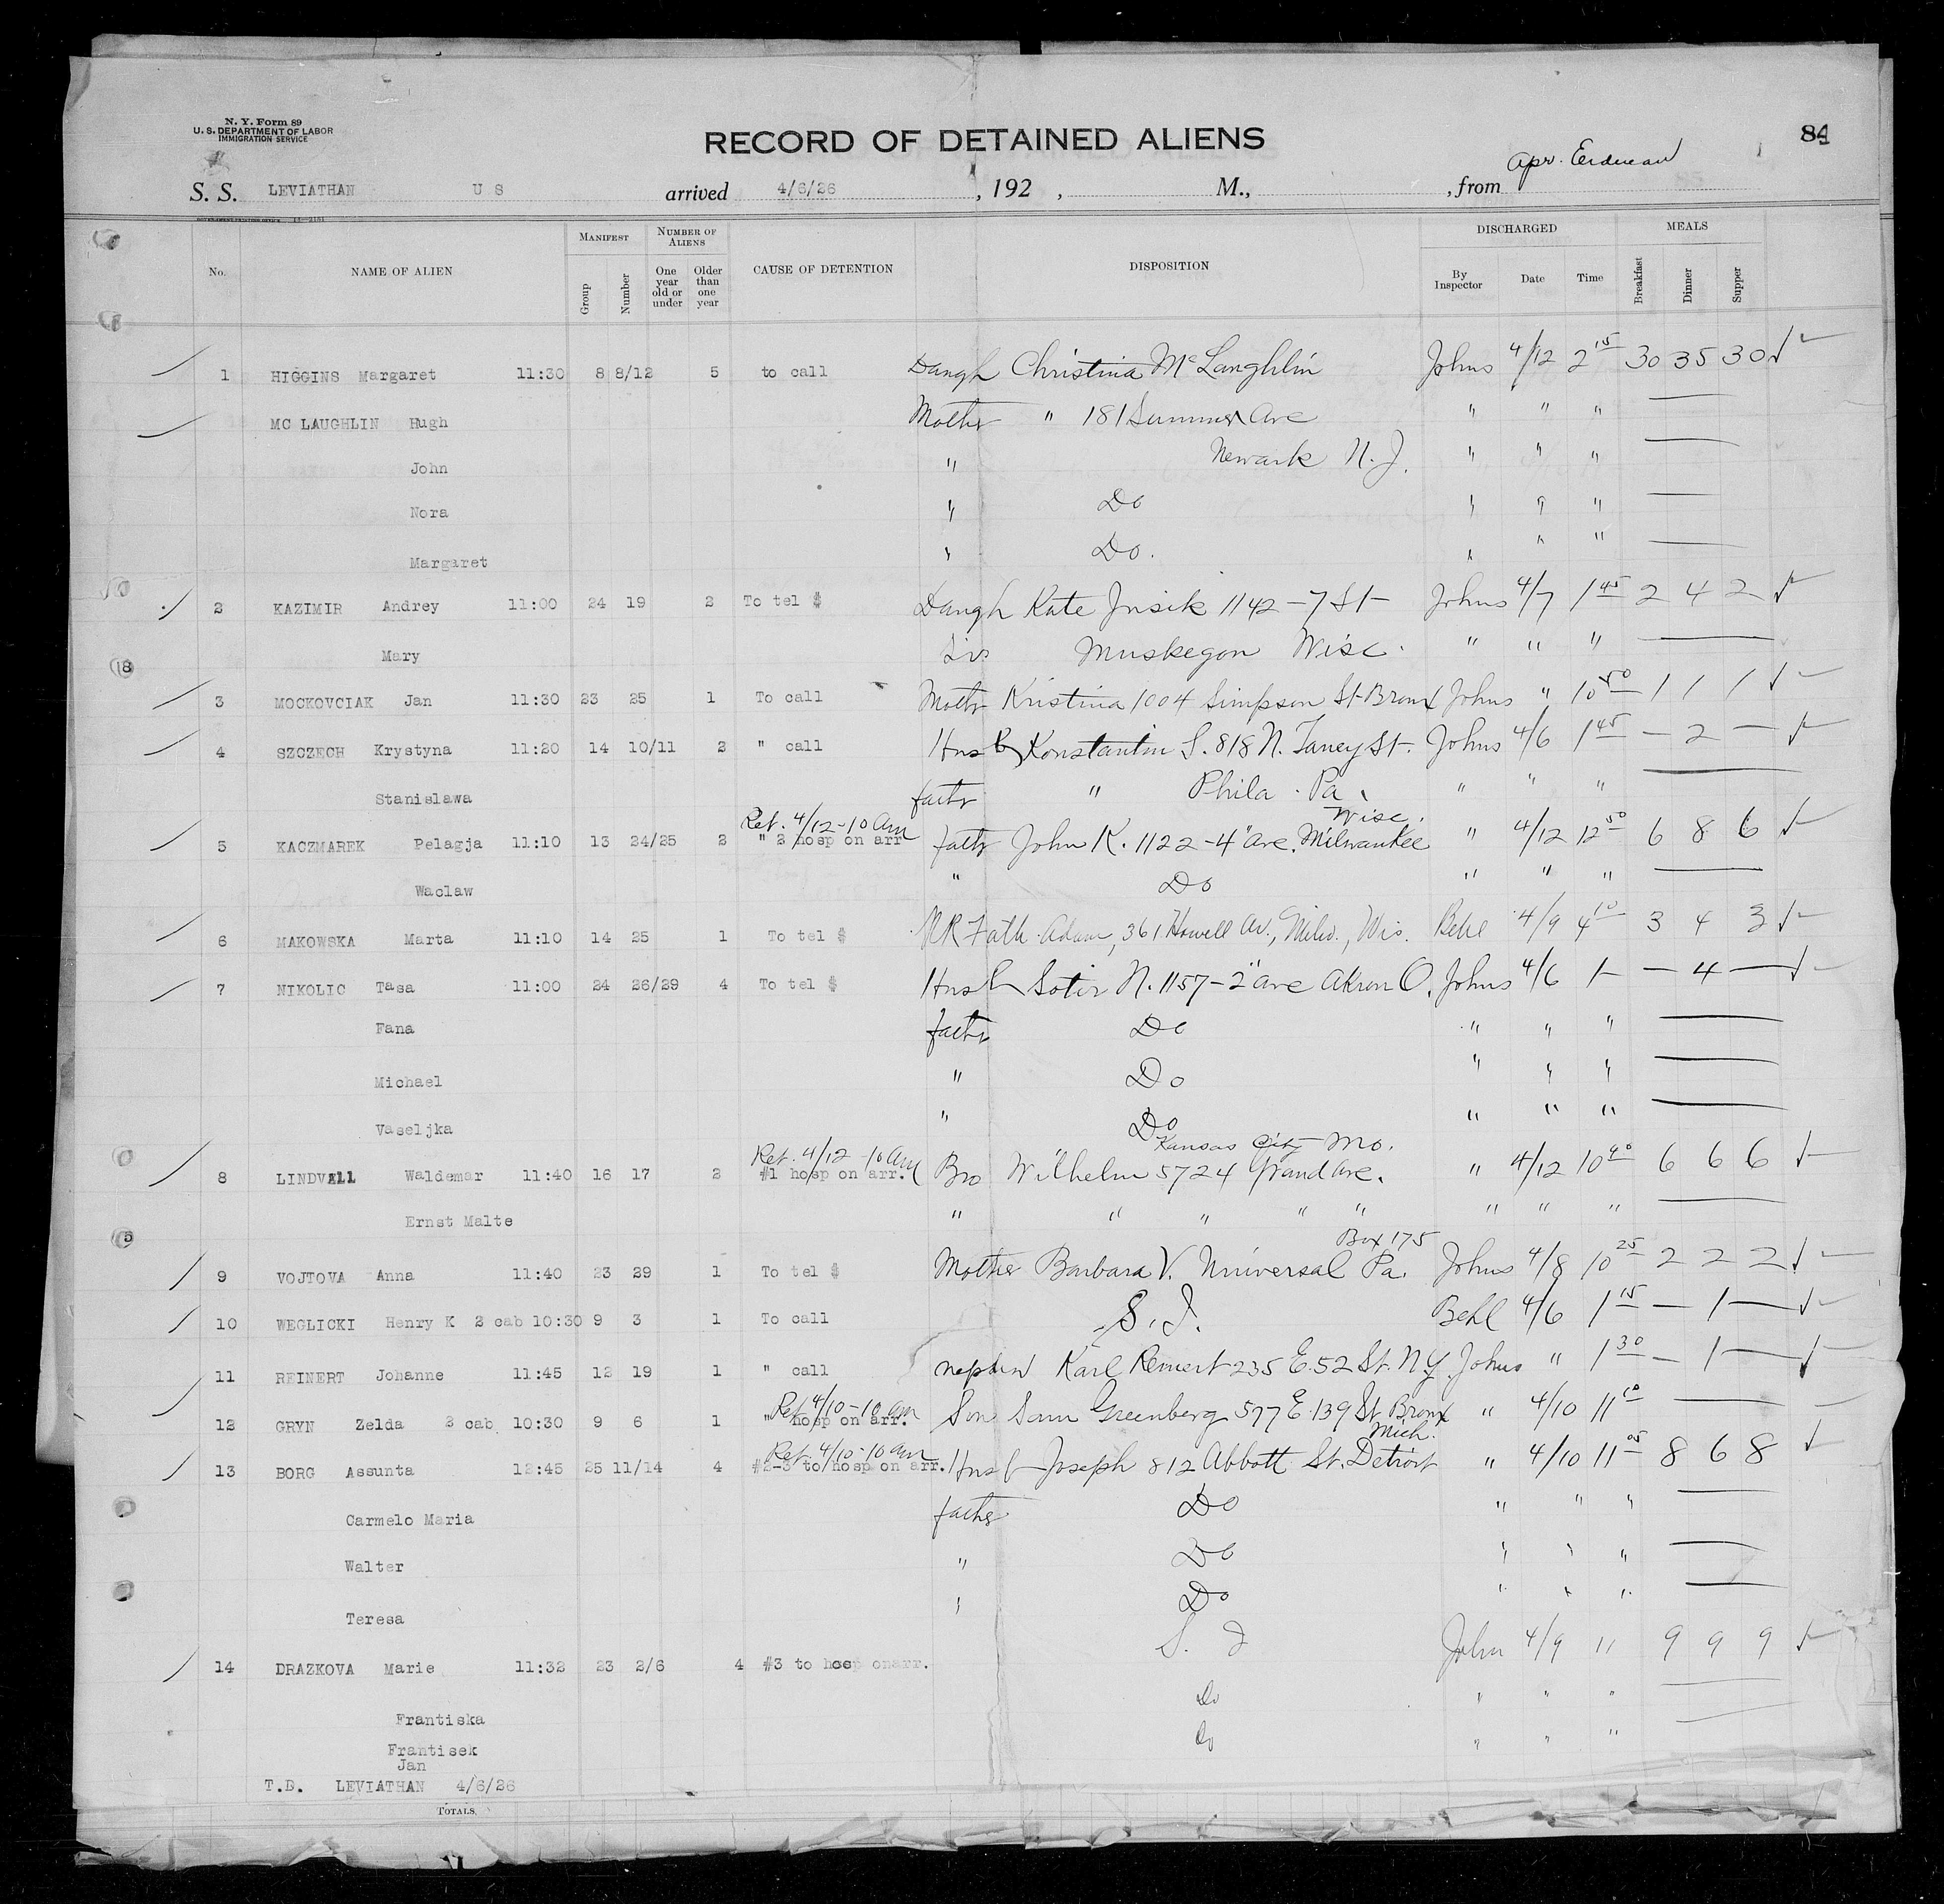 N. Y. Form 89
U. S. DEPARTMENT OF LABOR
IMMIGRATION SERVICE
RECORD OF DETAINED ALIENS
84
S. S. LEVIATHAN U S arrived 4/6/26, 192 , M., , from Apr.
No. NAME OF ALIEN MANIFEST Group Number NUMBER OF ALIENS One year old or under Older than one year CAUSE OF DETENTION DISPOSITION DISCHARGED By Inspector Date Time MEALS Breakfast Dinner Supper
1 HIGGINS Margaret 11:30 8 8/12 5 to call Daugh Christina McLaughlin Johns 4/12 2 15 30 35 30
MC LAUGHLIN Hugh Mother " 181 Summer Ave " " "
John " Newark N. J. " " "
Nora " Do " " "
Margaret " Do. " " "
2 KAZIMIR Andrey 11:00 24 19 2 To tel $ Daugh Kate 1142-7 St Johns 4/7 1 45 2 4 2
Mary Sis Muskegon Wisc. " " "
3 MOCKOVCIAK Jan 11:30 23 25 1 To call Mother Kristina 1004 Simpson St Bronx Johns " 10 50 1 1 1
4 SZCZECH Krystyna 11:20 14 10/11 2 " call Husb Konstantin S. 818 N. Taney St. Johns 4/6 1 45 — 2 —
Stanislawa father " Phila. Pa. " " "
Ret. 4/12-10 AM Wisc.
5 KACZMAREK Pelagja 11:10 13 24/25 2 " 2 hosp on arr fathr John K. 1122-4" Ave. Milwaukee " 4/12 12 50 6 8 6
Waclaw " Do " " "
6 MAKOWSKA Marta 11:10 14 25 1 To tel $ Fath Adam, 361 Howell Av., Milw., Wis. Behl 4/9 4 10 3 4 3
7 NIKOLIC Tasa 11:00 24 26/29 4 To tel $ Husb Sotir N. 1157-2" Ave Akron O. Johns 4/6 1 — — 4 —
Fana father Do " " "
Michael " Do " " "
Vaseljka " Do " " "
Ret. 4/12-10 AM Kansas City Mo.
8 LINDVALL Waldemar 11:40 16 17 2 #1 hosp on arr. Bro Wilhelm 5724 Grand Ave. " 4/12 10 40 6 6 6
Ernst Malte " " " " " " " "
Box 175
9 VOJTOVA Anna 11:40 23 29 1 To tel $ Mother Barbara V. Universal Pa. Johns 4/8 10 25 2 2 2
10 WEGLICKI Henry K 2 cab 10:30 9 3 1 To call S. I. Behl 4/6 1 15 — 1 —
11 REINERT Johanne 11:45 12 19 1 " call nephew Karl Reinert 235 E. 52 St. N.Y. Johns " 1 30 — 1 —
Ret 4/10-10 AM
12 GRYN Zelda 2 cab 10:30 9 6 1 " hosp on arr. Son Sam Greenberg 577 E. 139 St Bronx " 4/10 11 10
Ret. 4/10-10 AM Mich.
13 BORG Assunta 12:45 25 11/14 4 #2-3 to hosp on arr. Husb Joseph 812 Abbott St. Detroit " 4/10 11 05 8 6 8
Carmelo Maria father Do " " "
Walter " Do " " "
Teresa " Do " " "
14 DRAZKOVA Marie 11:32 23 2/6 4 #3 to hosp on arr. S. I John 4/9 11 9 9 9
Frantiska Do " " "
Frantisek Do " " "
Jan
T.D. LEVIATHAN 4/6/26
TOTALS